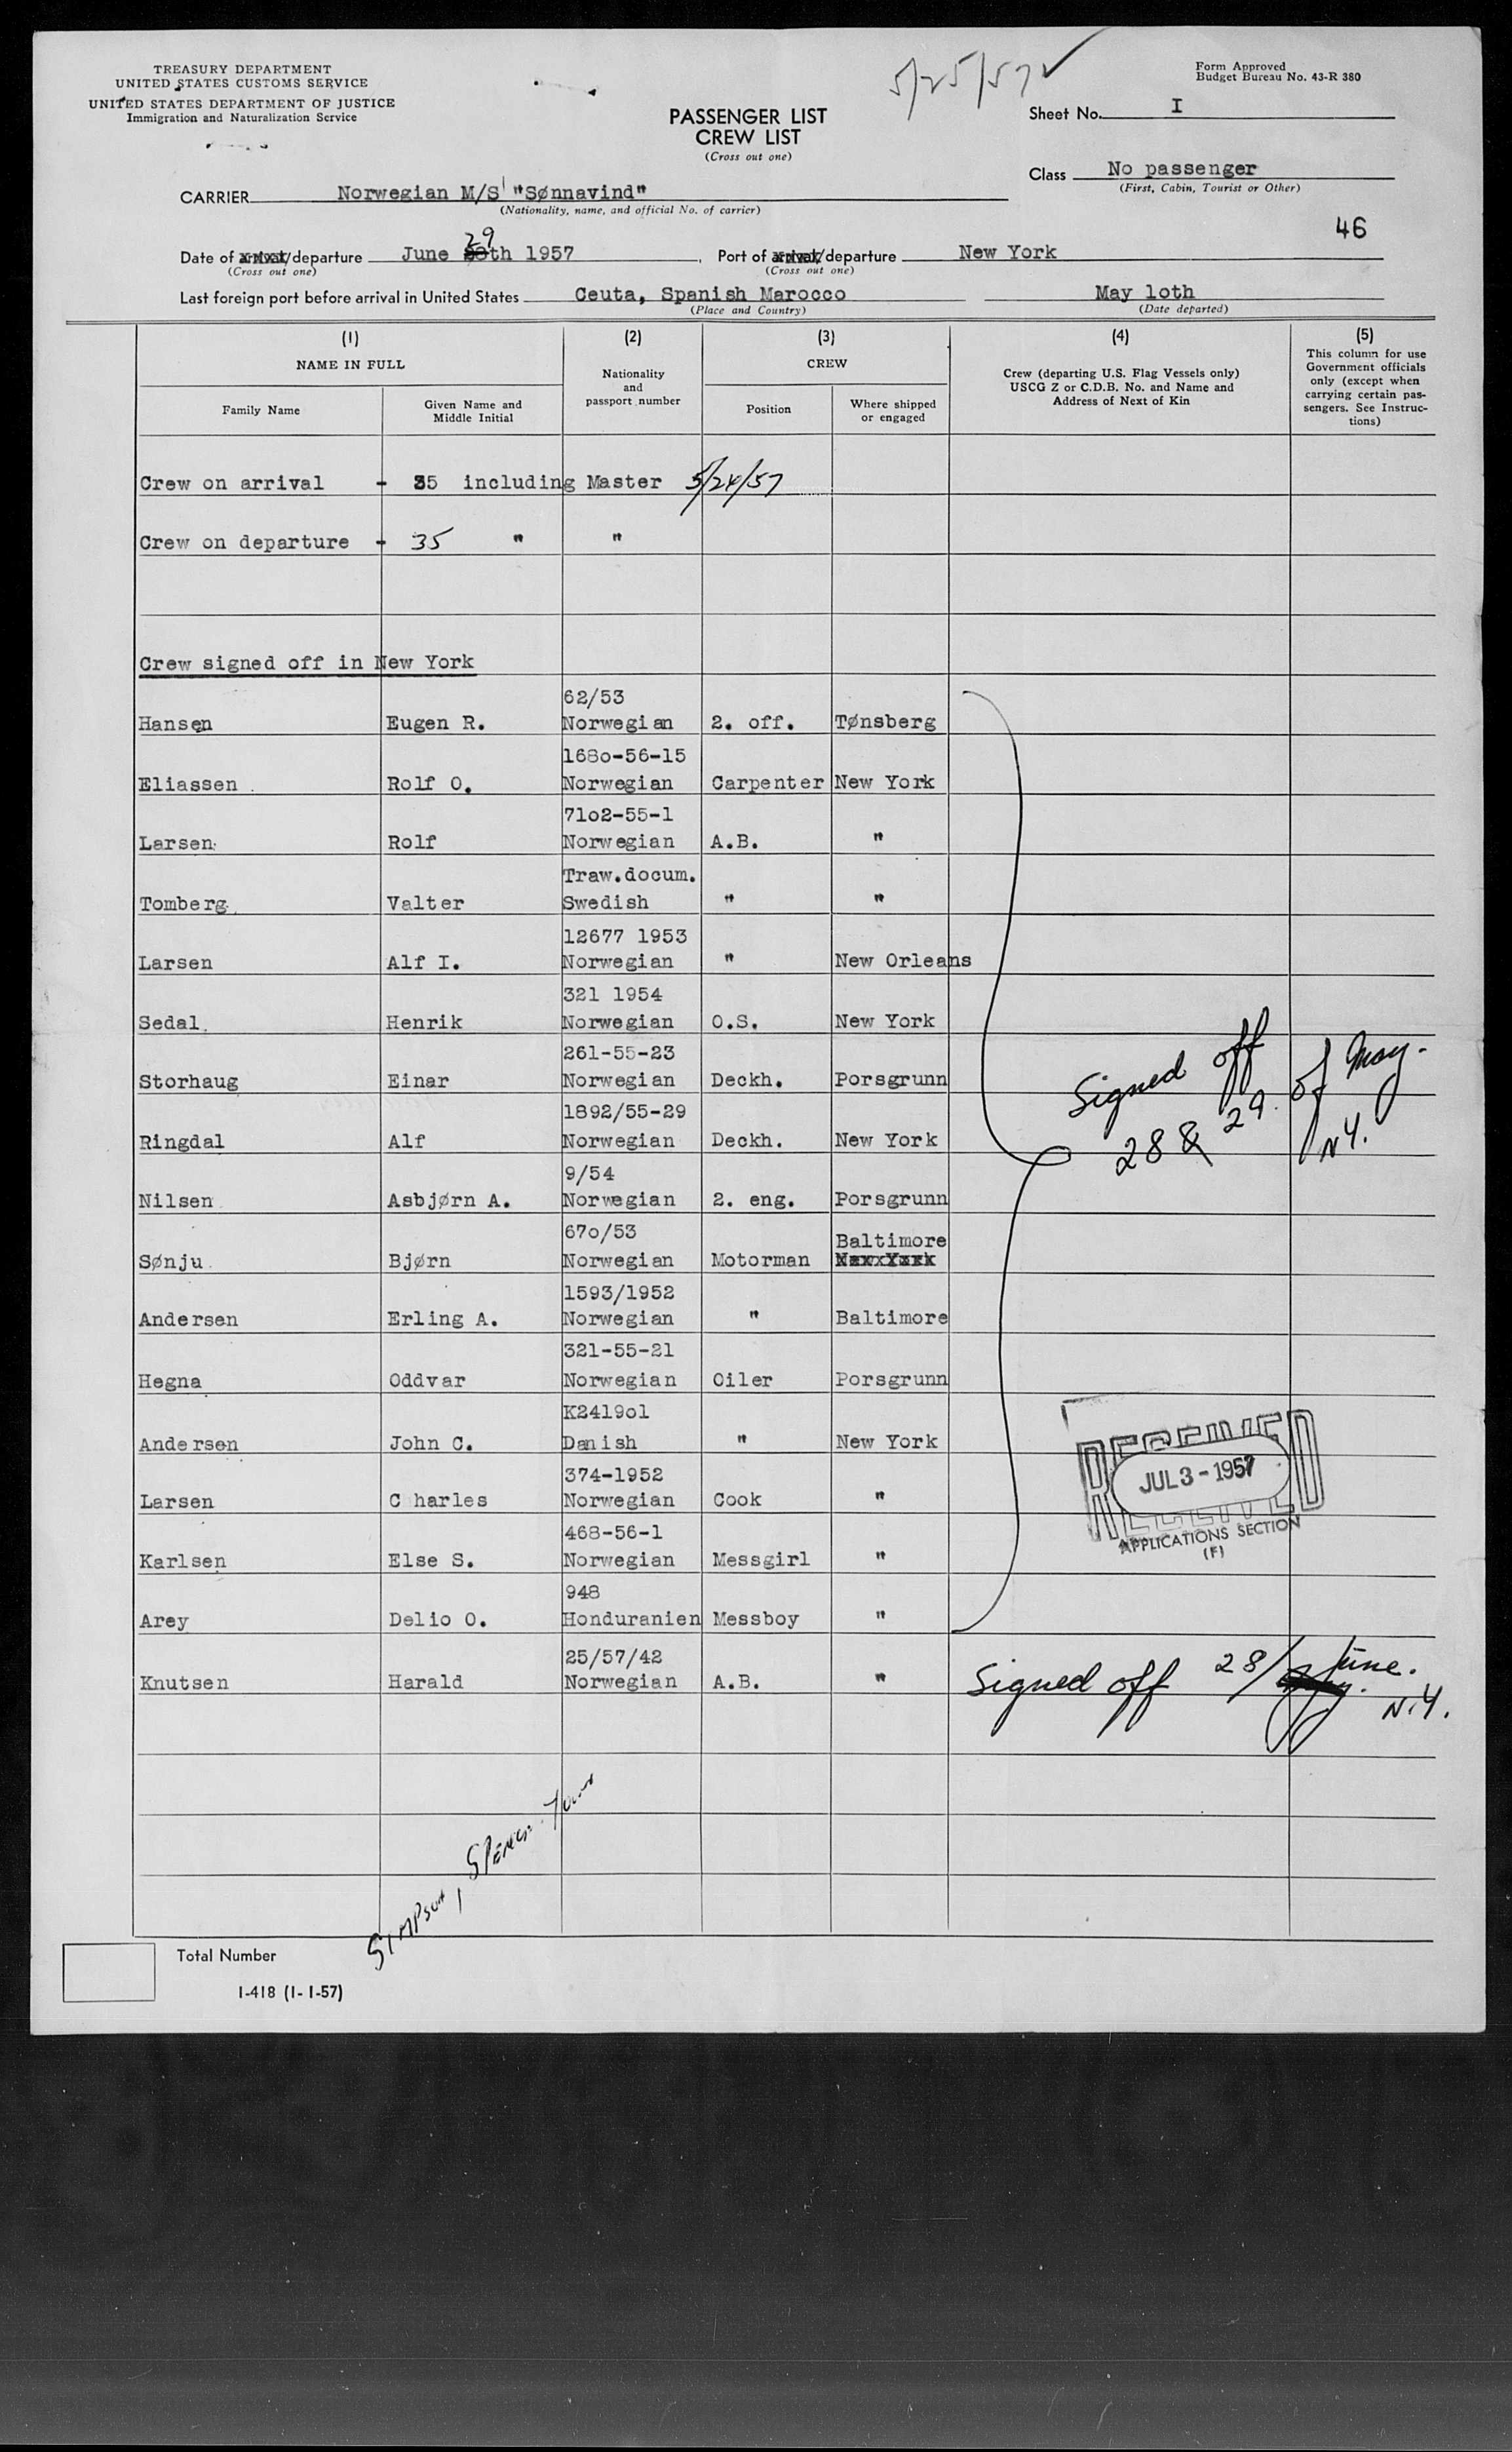 TREASURY DEPARTMENT
UNITED STATES CUSTOMS SERVICE
UNITED STATES DEPARTMENT OF JUSTICE
Immigration and Naturalization Service
5/25/57
PASSENGER LIST
CREW LIST
(Cross out one)
Form Approved
Budget Bureau No. 43-R 380
Sheet No. I
Class No passenger
(First, Cabin, Tourist or Other)
CARRIER Norwegian M/S "Sønnavind"
(Nationality, name, and official No. of carrier)
46
29
Date of arrival/departure June 28th 1957, Port of arrival/departure New York
(Cross out one) (Cross out one)
Last foreign port before arrival in United States Ceuta, Spanish Marocco May 1oth
(Place and Country) (Date departed)
(1) (2) (3) (4) (5)
NAME IN FULL
Family Name
Given Name and
Middle Initial
Nationality
and
passport number
CREW
Position
Where shipped
or engaged
Crew (departing U.S. Flag Vessels only)
USCG Z or C.D.B. No. and Name and
Address of Next of Kin
This column for use
Government officials
only (except when
carrying certain pas-
sengers. See Instruc-
tions)
Crew on arrival - 35 including Master 5/24/57
Crew on departure - 35 " "
Crew signed off in New York
62/53
Hansen Eugen R. Norwegian 2. off. Tønsberg
168o-56-15
Eliassen Rolf O. Norwegian Carpenter New York
71o2-55-1
Larsen Rolf Norwegian A.B. "
Traw.docum.
Tomberg Valter Swedish " "
12677 1953
Larsen Alf I. Norwegian " New Orleans
321 1954
Sedal Henrik Norwegian O.S. New York
261-55-23
Storhaug Einar Norwegian Deckh. Porsgrunn
1892/55-29
Ringdal Alf Norwegian Deckh. New York
Signed off
28 & 29 of May.
N.Y.
9/54
Nilsen Asbjørn A. Norwegian 2. eng. Porsgrunn
67o/53 Baltimore
Sønju Bjørn Norwegian Motorman New York
1593/1952
Andersen Erling A. Norwegian " Baltimore
321-55-21
Hegna Oddvar Norwegian Oiler Porsgrunn
K2419o1
Andersen John C. Danish " New York
374-1952
Larsen Charles Norwegian Cook "
468-56-1
Karlsen Else S. Norwegian Messgirl "
948
Arey Delio O. Honduranien Messboy "
25/57/42
Knutsen Harald Norwegian A.B. "
RECEIVED
JUL 3 - 1957
RECEIVED
APPLICATIONS SECTION
(F)
Signed off 28/June.
N.Y.
Simpson, Spence
Total Number
I-418 (1-1-57)